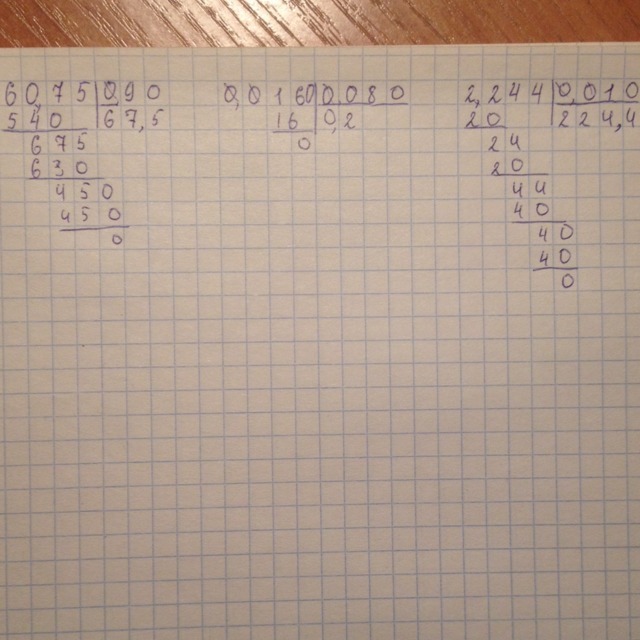 60,75 0,90
540 67,5
675
630
450
450
0
0,0160 0,080
16 0,2
0
2,244 0,010
20 224,4
24
20
44
40
40
40
0